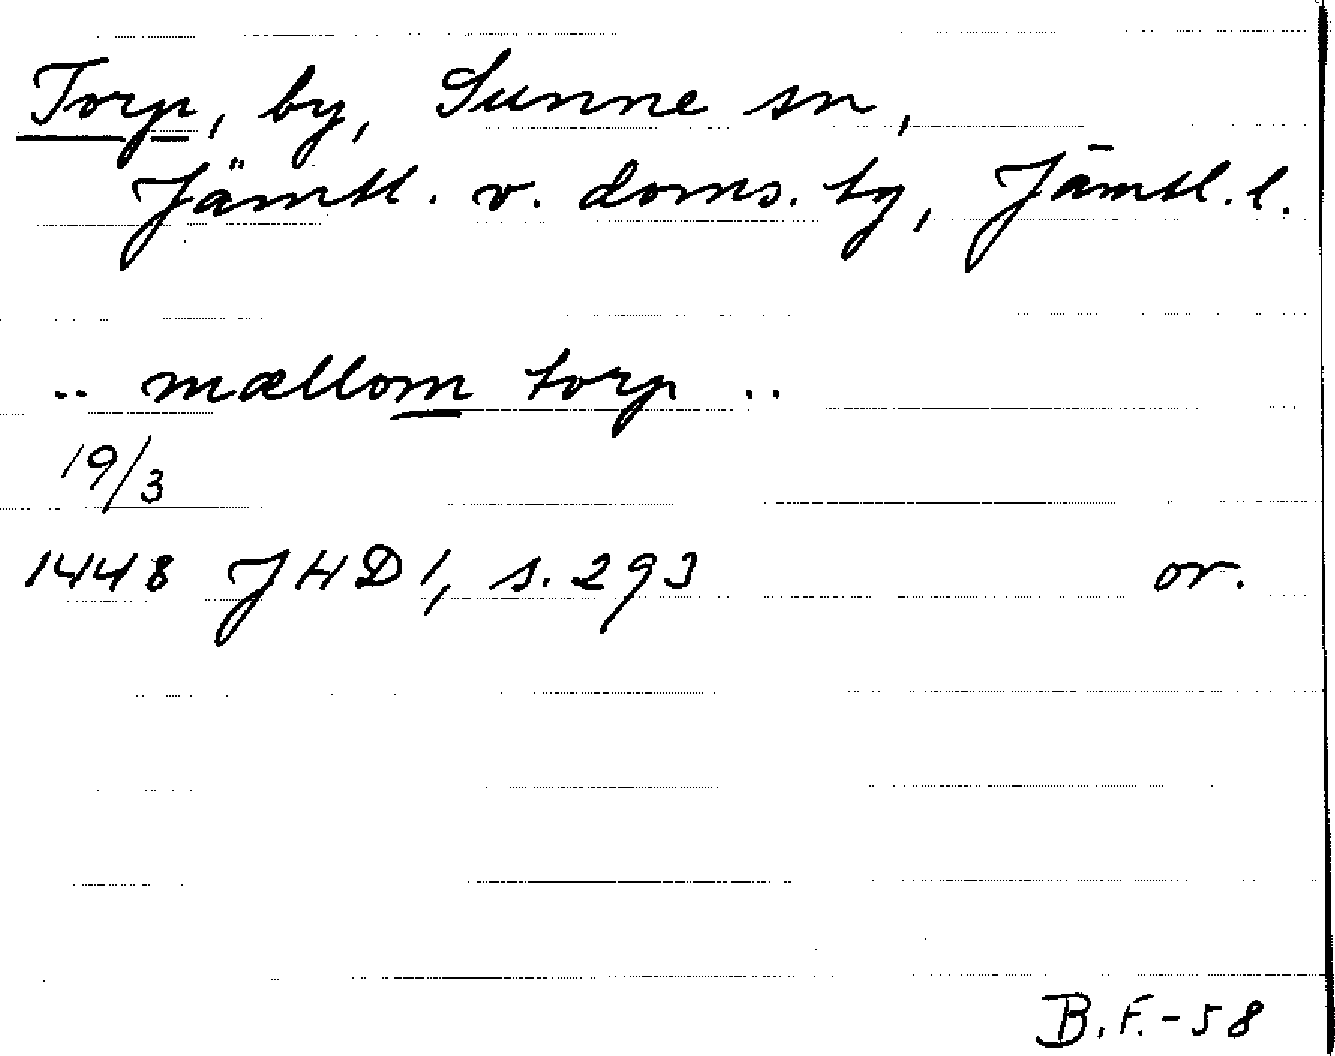 Torp, by, Sunne sn,
Jämtl. v. doms. tg, Jämtl. l.
.. mællom torp ..
19/3
1448 JHD 1, s. 293 or.
B.F.-58